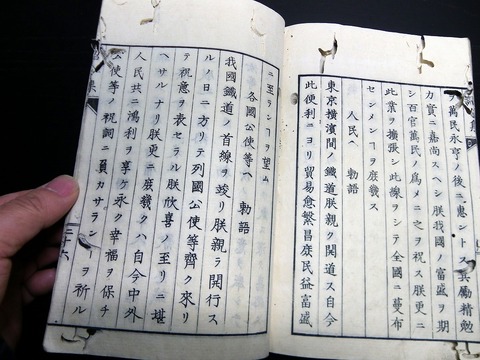 ヲ萬民永亨ノ後ニ惠ントス其勵精勉
力實ニ嘉尚スヘシ朕我國ノ富盛ヲ期
シ百官萬民ノ爲メニ之ヲ祝ス朕更ニ
此業ヲ擴張シ此線ヲシテ全國ニ蔓布
セシメンヿヲ庶幾ス
人民ヘ 勅語
東京橫濱間ノ鐵道朕親ク開道ス自今
此便利ニヨリ貿易愈繁昌庶民益富盛
ニ至ランヿヲ望ム
各國公使等ヘ 勅語
我國鐵道ノ首線ヲ竣リ朕親ラ開行ス
ルノ日ニ方リテ列國公使等齊ク來リ
テ祝意ヲ表セラル朕欣喜ノ至リニ堪
ヘサルナリ朕更ニ庶幾クハ自今中外
人民共ニ鴻利ヲ享ケ永ク幸福ヲ保チ
公使等ノ祝詞ニ負カサランヿヲ祈ル